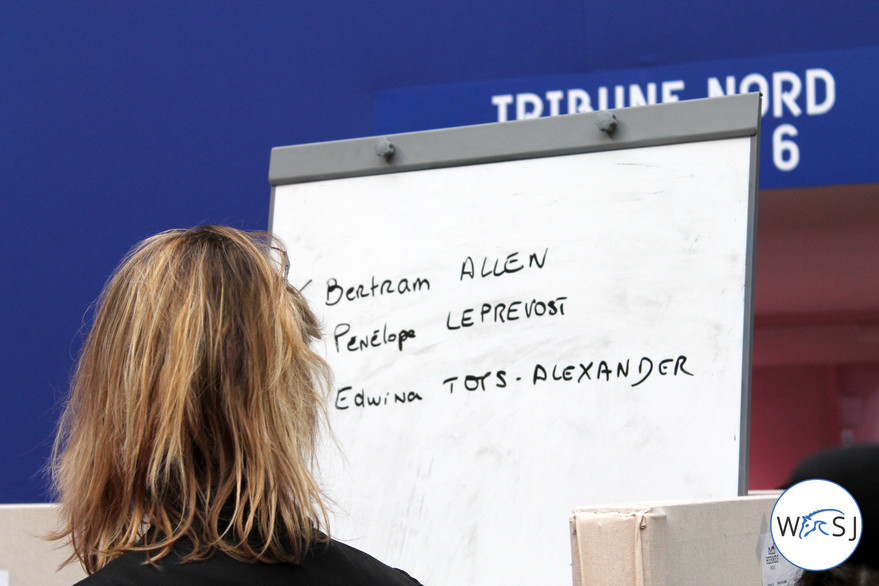 TRIBUNE NORD
6
Bertram ALLEN
Penélope LEPREVOST
Edwina TOTS-ALEXANDER
W SJ